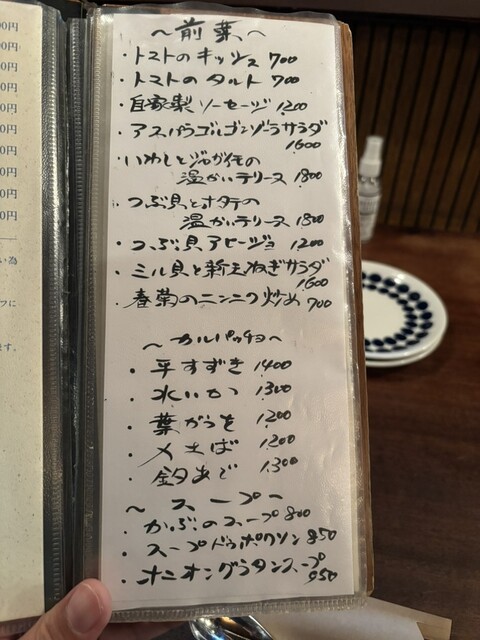 00円
0円
0円
0円
0円
0円
0円
0円
い為
フに
ます。
〜前菜〜
・トマトのキッシュ 700
・トマトのタルト 700
・自家製ソーセージ 1200
・アスパラゴルゴンゾーラサラダ
1600
・いわしとじゃがイモの
温かいテリーヌ 1800
・つぶ貝とホタテの
温かいテリーヌ 1800
・つぶ貝アヒージョ 1200
・ミル貝と新玉ねぎサラダ
1600
・春菊のニンニク炒め 700
〜カルパッチョ〜
・平すずき 1400
・水いか 1300
・葉がつを 1200
・メヌば 1200
・釣あじ 1300
〜スープ〜
・かぶのスープ 800
・スープドゥポワソン 850
・オニオングラタンスープ
950